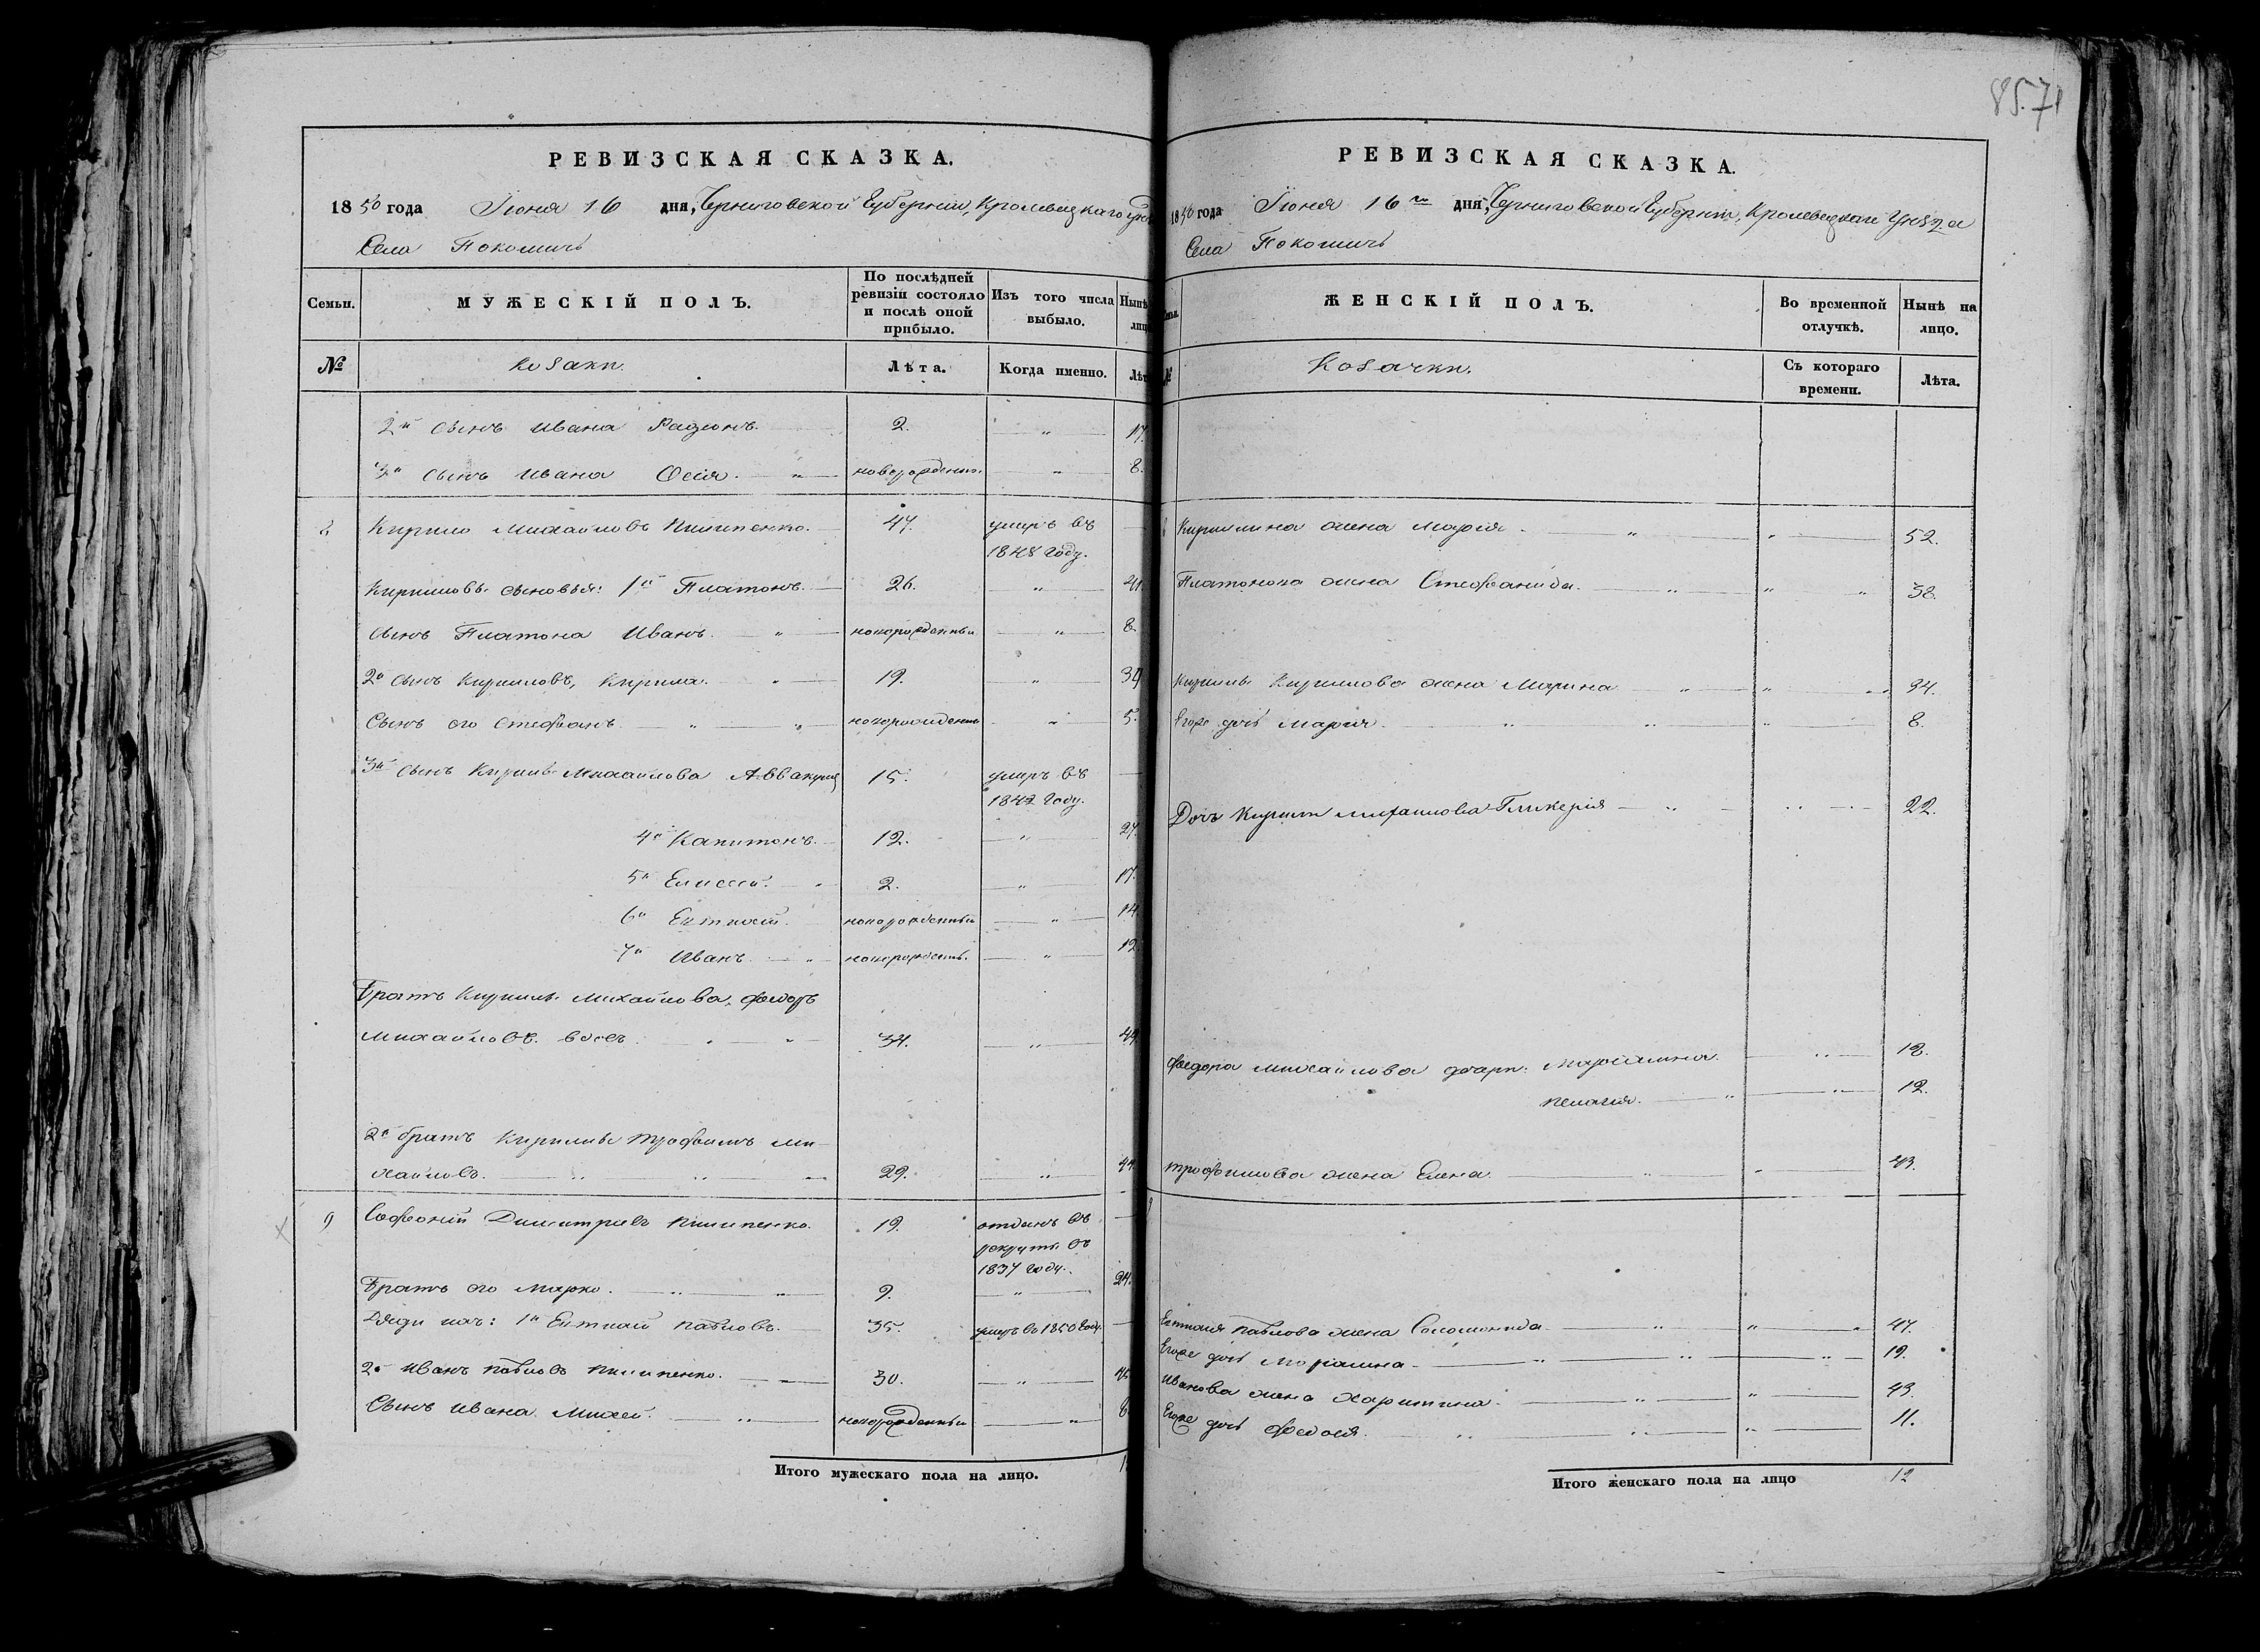 РЕВИЗСКАЯ СКАЗКА.
1850 года Іюня 16 дня, Черниговской Губерніи, Кролевецкаго
Села Покошичъ
Семьи. МУЖЕСКІЙ ПОЛЪ. По послѣдней ревизіи состояло и послѣ оной прибыло. Изъ того числа выбыло. Нынѣ
№ козаки. Лѣта. Когда именно.
2й сынъ Ивана Радионъ. 2. " 17.
3й сынъ Ивана " новорожден. " 8.
8 Кирило Михайловъ Пилипенко. 47. умеръ въ
1848 году.
Кириловы сыновья: 1й Платонъ. 26. " 41
сынъ Платона Иванъ. " новорожденный " 8
2й сынъ Кириловъ, Кирила. " 19. " 34
Сынъ его Стефанъ " новорожденны " 5
3й сынъ Кирилы Михайлова 15. умеръ въ
1842 году.
4й Капитонъ. 12. " 27.
5й Елисей. " 2. " 17.
6й Евтихій. новорожденный " 14.
7й Иванъ. " новорожден. " 12.
Братъ Кирилы Михайлова, Федоръ
Михайловъ. " 34. " 49
2й братъ Кирилы Трофимъ Ми-
хайловъ. " 29. " 44.
9 Софроній Димитріевъ Пилипенко. 19. отданъ въ
рекруты въ
1837 году.
Братъ его Марко. " 9. " 24.
Дяди ихъ: 1й Евтихій Павловъ. 35. умеръ въ 1850 году.
2й Иванъ Павловъ Пилипенко. 30. " 45
Сынъ Ивана Михей. " новорожденный " 8
Итого мужескаго пола на лицо.
85.71
РЕВИЗСКАЯ СКАЗКА.
1850 года Іюня 16го дня, Черниговской Губерніи, Кролевецкаго Уѣзда
Села Покошичъ
ЖЕНСКІЙ ПОЛЪ. Во временной отлучкѣ. Нынѣ на лицо.
№ Козачки. Съ котораго времени. Лѣта.
8 Кирилина жена Марія. " " 52.
Платонова жена Стефанида. " " 38.
Кирилы Кирилова жена Марина " " 34.
Егоже дочь Марія. " " 8.
Дочь Кирилы Михайлова Гликерія " 22.
Федора Михайлова дочери: Маріамна. " 18.
Пелагія. " 12.
Трофимова жена Елена. " 43.
9
Евтихія Павлова жена Соломонида " " 47.
Егоже дочь Маріамна. " " 19.
Иванова жена Харитина. " " 43.
Егоже дочь Федосія. " " 11.
Итого женскаго пола на лицо 12